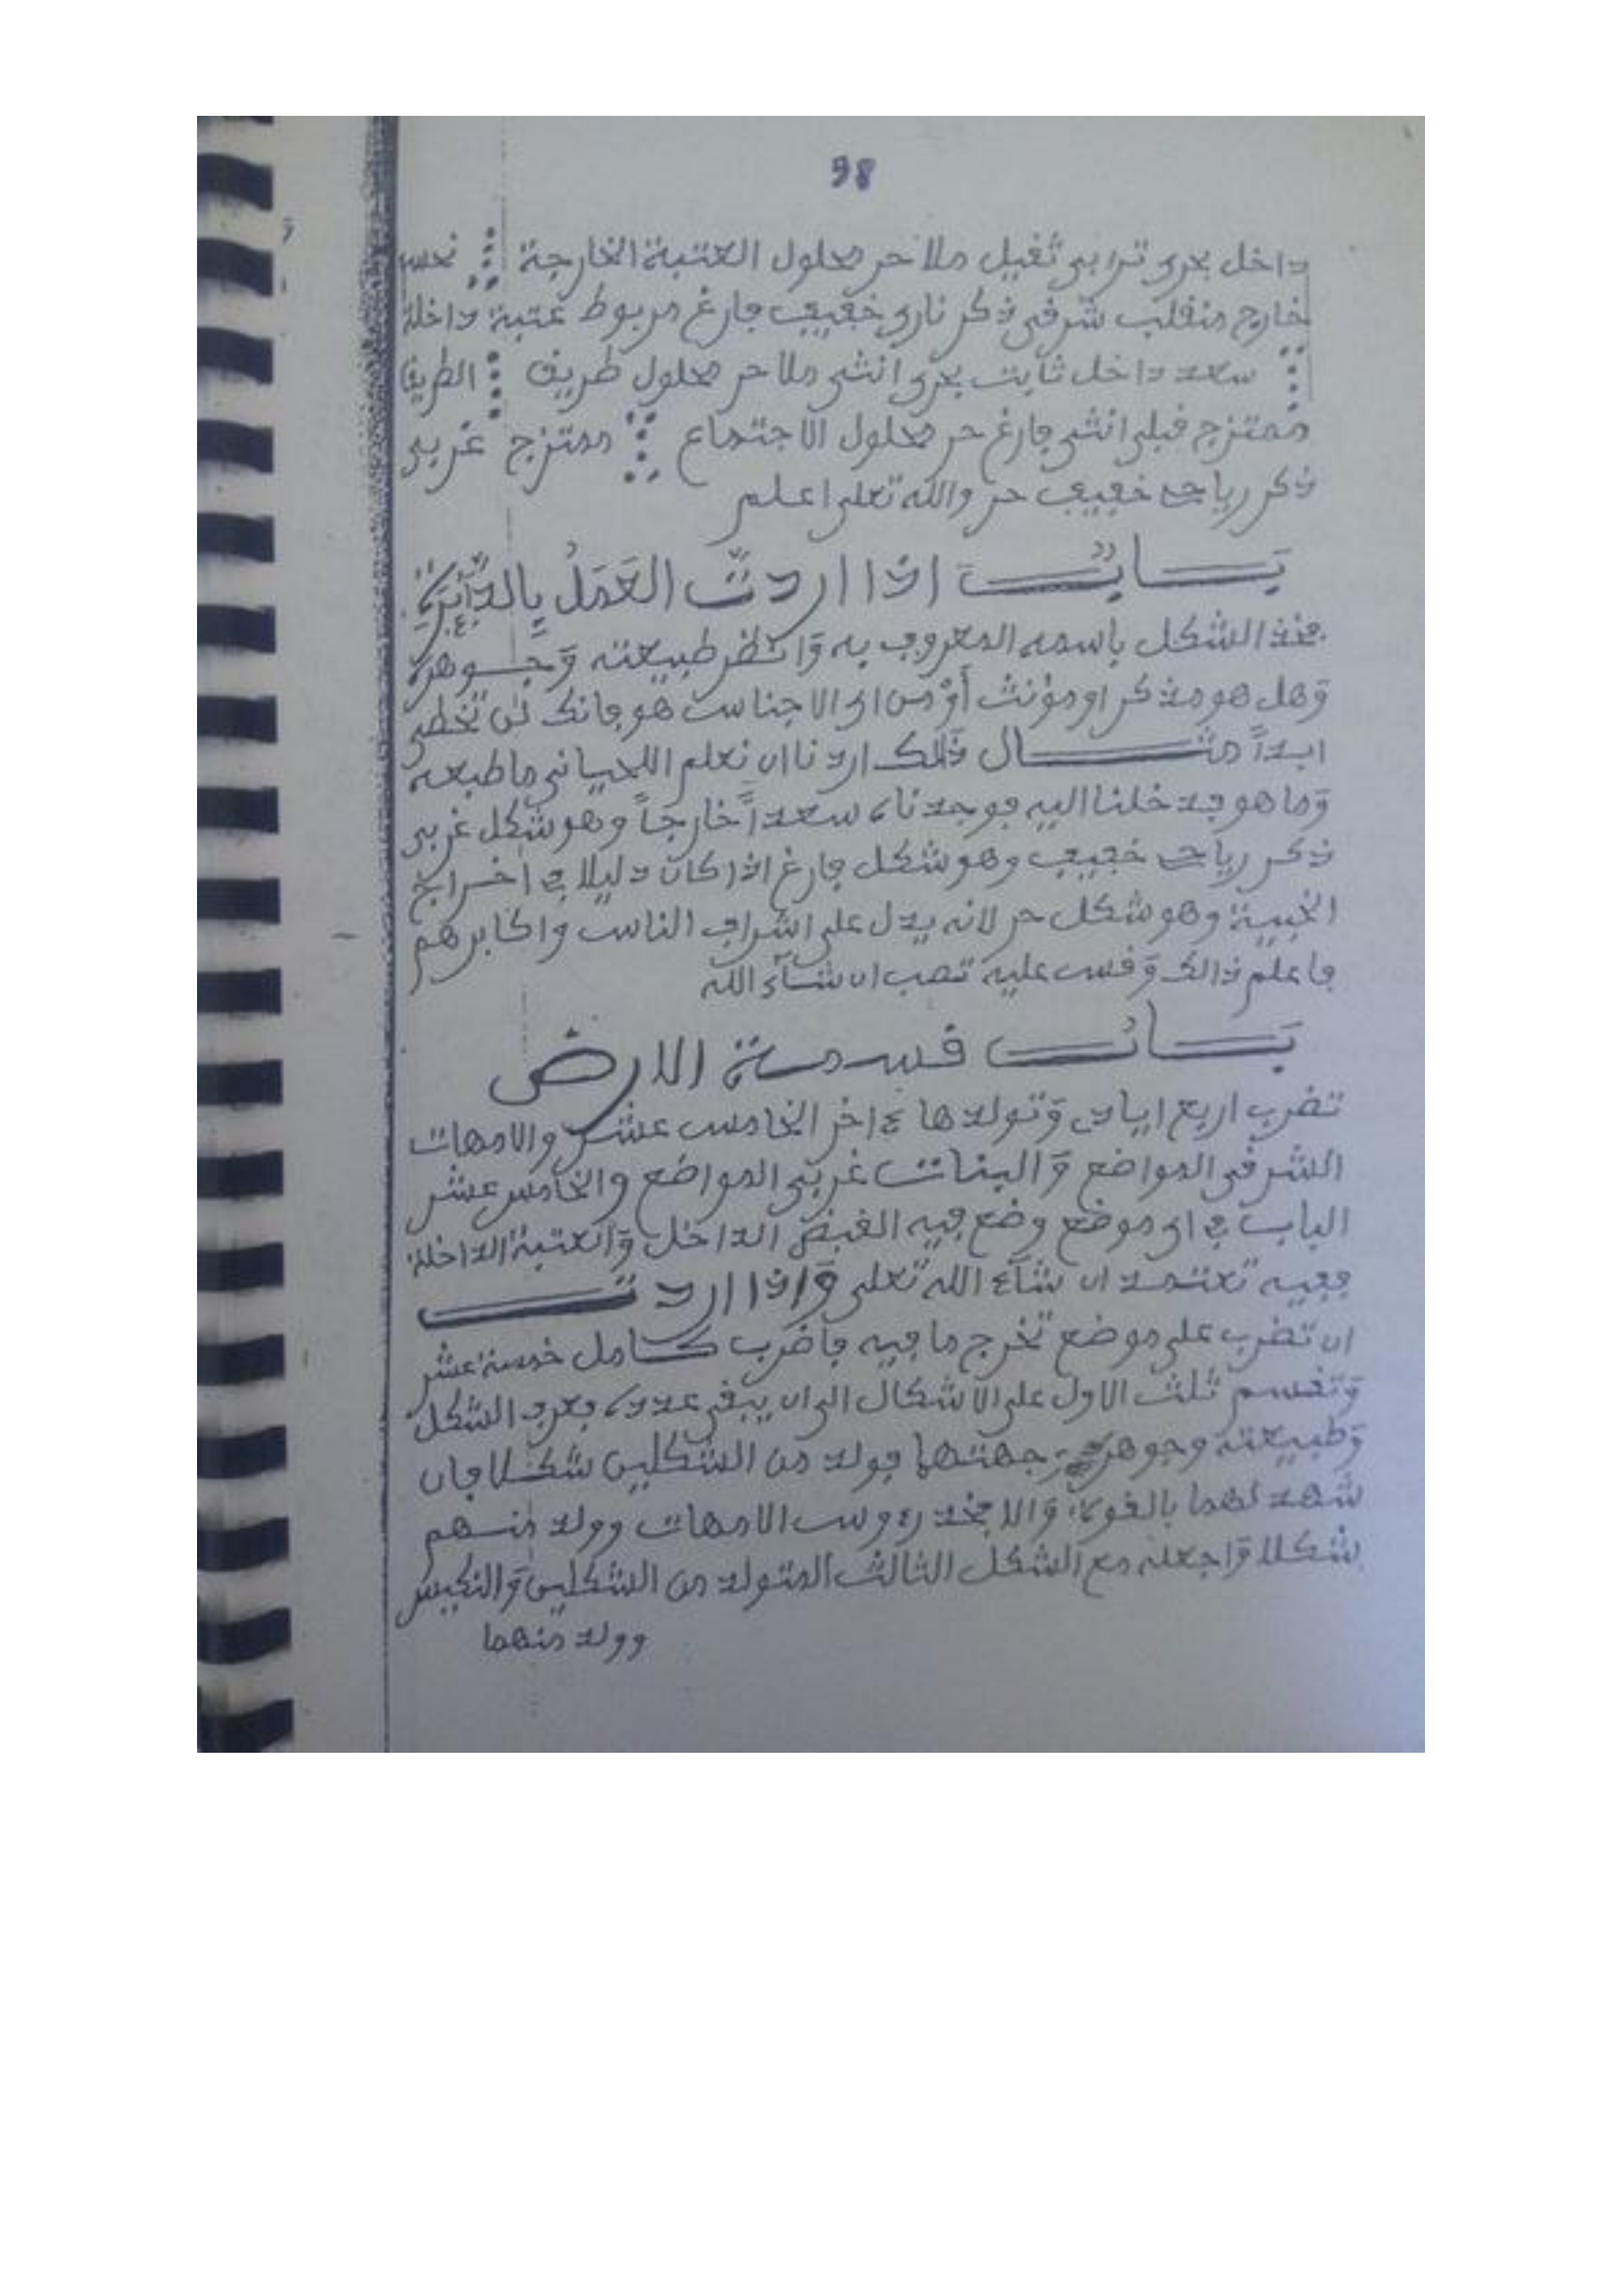 98
داخل بحرى ترابى ثقيل ملا حر محلول العتبة الخارجة نحس
خارج منقلب شرقى ذكر نارى خفيف فارغ مربوط عتبة داخلة
سعد داخل ثابت بحرى انثى ملا حر محلول طريق الطريق
ممتزج قبلى انثى فارغ حر محلول الاجتماع ممتزج غربى
ذكر رياحى خفيف حر والله تعلى اعلم
بَابٌ اذا اردتَّ العَمَلُ بِالدَّآئِرَةِ
فخذ الشكل باسمه المعروف به وَانظر طبيعته وَجوهره
وَهل هو مذكر او مؤنث أَوْ من اى الاجناس هو فانك لن تخطى
ابداً مثال ذٰلك اردنا ان نعلم اللحيانى ما طبعه
وَما هو فدخلنا اليه فوجدناه سعداً خارجاً وهو شكل غربى
ذكر رياحى خفيف وهو شكل فارغ اذا كان دليلا فى اخراج
الخبية وهو شكل حر لانه يدل على اشراف الناس واكابرهم
فاعلم ذالك وَقس عليه تصب ان شآء الله
بَابُ قسمة الارض
تضرب اربع ابيات وَتولدها ءاخر الخامس عشر والامهات
الشرقى المواضع وَالبنات غربى المواضع والخامس عشر
الباب فى اى موضع وضع فيه القبض الداخل وَالعتبة الداخلة
ففيه تعتمد ان شآء الله تعلى وَاذا اردت
ان تضرب على موضع تخرج ما فيه فاضرب كامل خمسة عشر
وَتقسم ثلث الاول على الاشكال الى ان يبقى عدده فعرف الشكل
وَطبيعته وجوهره جهتهما فولد من الشكلين شكلا فان
شهد لهما بالقوة وَالا فخذ رءوس الامهات وولد منهم
شكلا وَاجعله مع الشكل الثالث المتولد من الشكلين
وولد منهما